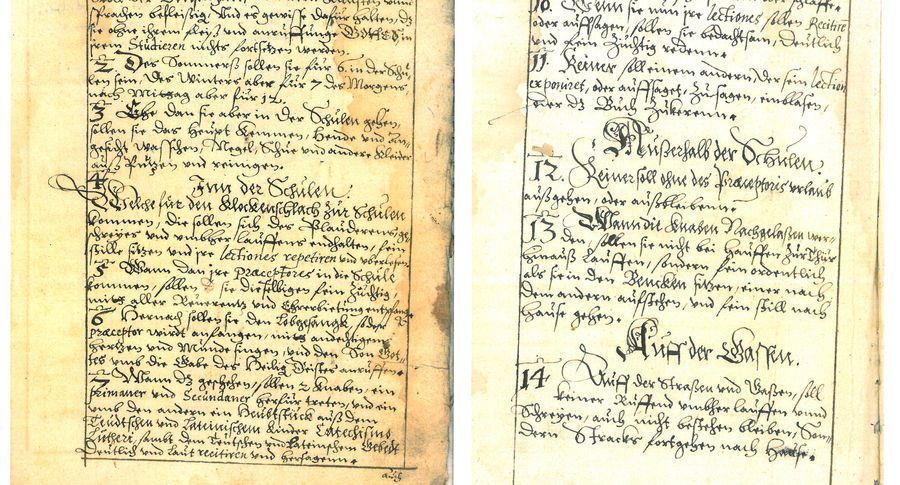 sprachen befleißig. Vnd es gewiß dafur halten, dz
sie ohne ihrem fleiß vnd anruffunge GOttes in
irem Studieren nichts fortsetzen werden.
2 Des Sommerß sollen sie für 6. in der Schu-
len sein. Des Winterr aber für 7 des Morgens
nach Mittag aber für 12.
3 Ehe dan sie aber in der Schulen gehen,
sollen sie das Heupt Kemmen, Hende vnd An-
gesicht waschen, Negel, Schue vnd andere Kleider
auß Putzen vnd reinigen.
4 Inn der Schulen.
Welche für den Klockenschlach zur Schulen
kommen, die sollen sich des Plauderens, ge-
schreyes vnd vmbher lauffens endhalten, fein
still sitzen vnd jre lectiones repetiren vnd vberlesen.
5 Wann dan jre præceptores in die Schule
kommen, sollen sie dieselbigen fein Züchtig,
mitt aller Reuerentz vnd Ehrerbietung entpfange
6 Hernach sollen sie den Lobgesangk, so der
præceptor wirdt anfangen, mitt andechtigem
hertzen vnd Munde singen, vnd den Son Got-
tes vmb die Gabe des Heilig Geistes anruffen.
7 Wann dz geschehen, sollen 2 Knaben, ein
primaner vnd Secundaner herfür treten, vnd ein
vmb den andern ein Heubtstück auß dem
Teudtschen vnd Lateinischem Kinder Catechismo
Lutheri, sambt dem Teutschen vnd lateinischem Gebedt
deutlich vnd laut recitiren vnd hersagenn.
auch
10. Wenn sie nun jre lectiones sollen Recitire
oder auffsagen, sollen sie bedachtsam, deutlich
vnd fein Züchtig redenn.
11. Keiner soll einem andern, der sein lection
exponiret, oder auffsaget, Zusagen, einblasen,
oder dz Buch Zukerenn.
Außerhalb der Schulen.
12. Keiner soll ohne des Præceptoris vrlaub
außgehen, oder außbleibenn.
13 Wann die Knaben Nachgelaßen wer-
den, sollen sie nicht bei Hauffen Zur Thür
hinauß Lauffen, sondern fein ordentlich
als sie in den Bencken sitzen, einer nach
dem andern aufstehen, vnd fein still nach
Hause gehen.
Auff der Gassen.
14 Auff der Straßen vnd Gaßen, soll
keiner Ruffend vmbher lauffen vnnd
Schreyen, auch nicht bestehen bleiben, Son-
dern Stracks fortgehen nach Hause.